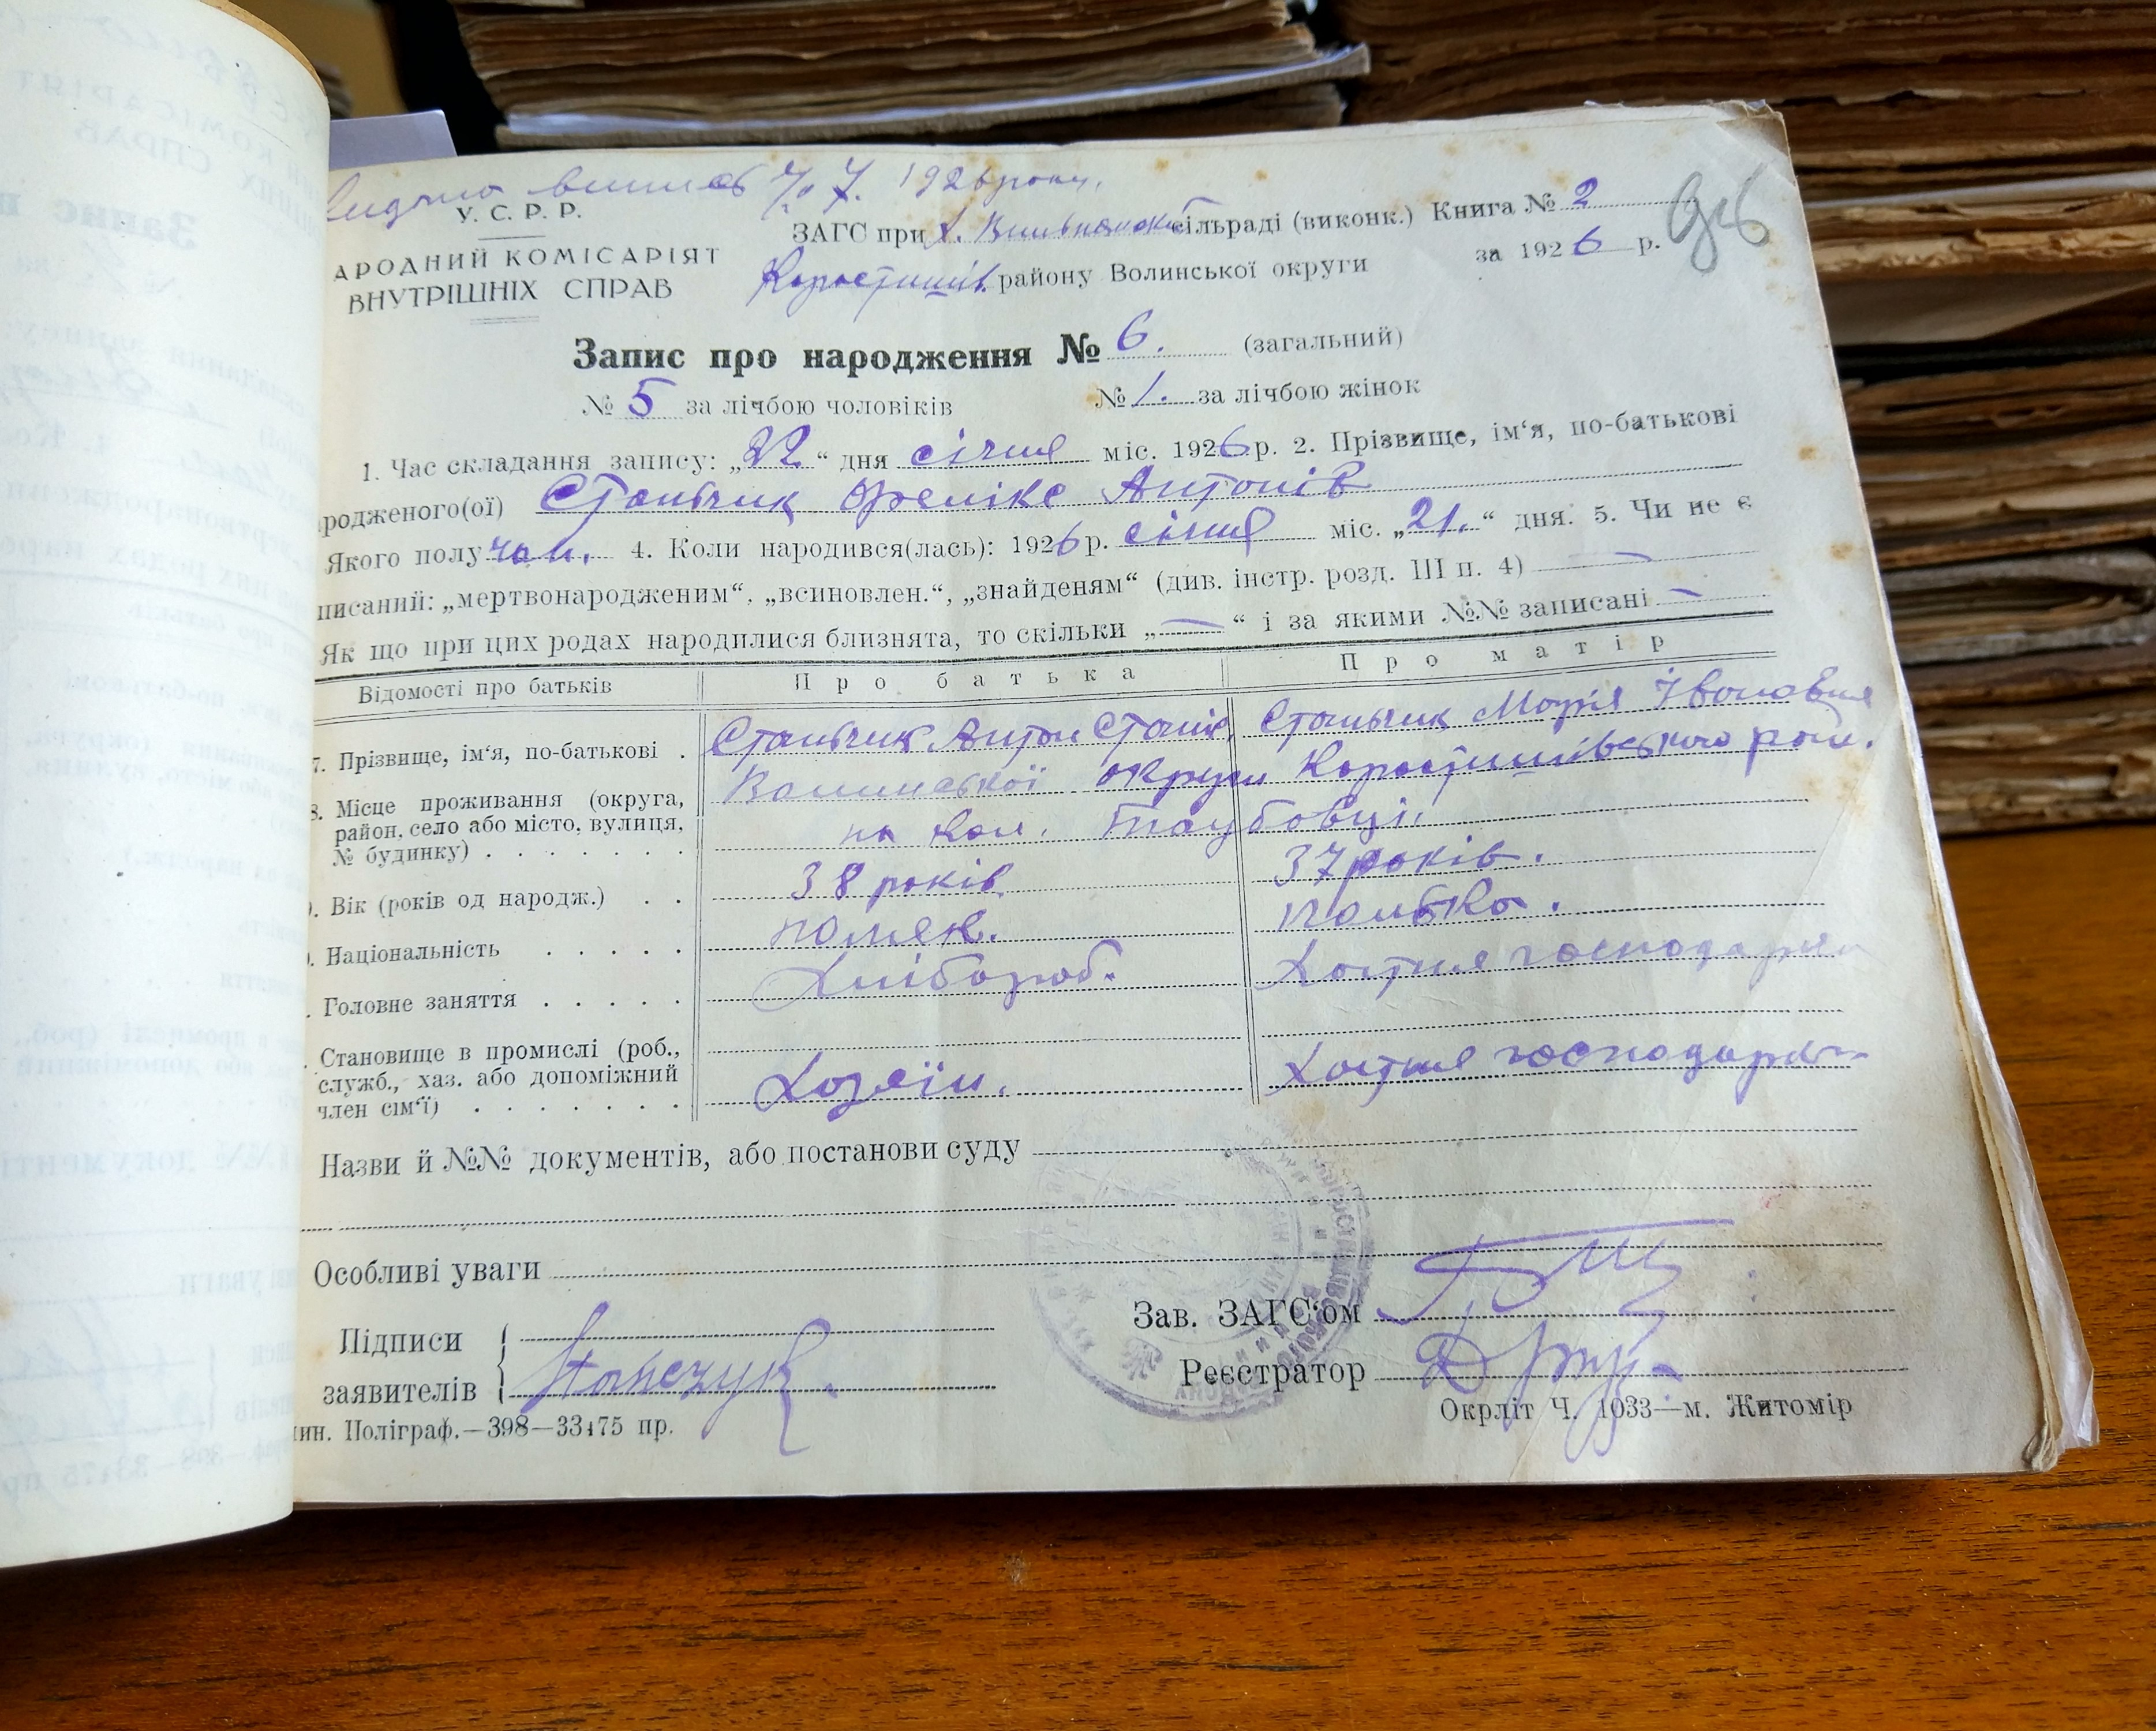 Видано виппсь 7. 1926 року.
У. С. Р. Р.
АРОДНИЙ КОМІСАРІЯТ
ВНУТРІШНІХ СПРАВ
ЗАГС при сільраді (виконк.) Книга № 2
Коростишів. району Волинської округи за 1926 р.
Запис про народження № 6. (загальний)
№ 5 за лічбою чоловіків № 1. за лічбою жінок
1. Час складання запису: „22“ дня січня міс. 1926 р. 2. Прізвище, ім‘я, по-батькові
родженого(ої) Станьчик Фелікс Антонів
Якого полу чол. 4. Коли народився(лась): 1926 р. січня міс. „21.“ дня. 5. Чи не є
писаний: „мертвонародженим“, „всиновлен.“, „знайденям“ (див. інстр. розд. III п. 4) —
Як що при цих родах народилися близнята, то скільки „—“ і за якими №№ записані —
Відомості про батьків Про батька Про матір
7. Прізвище, ім‘я, по-батькові . Станьчик Антон Станіс. Станьчик Марія Івановна
8. Місце проживання (округа, район, село або місто, вулиця, № будинку) . . . . . . . Волинської округи Коростишівського рай.
на кол. Таубовці.
. Вік (років од народж.) . . 38 років 37 років.
. Національність . . . . . поляк. полька.
. Головне заняття . . . . . Хлібороб. Хатня господарка
. Становище в промислі (роб.,
служб., хаз. або допоміжний
член сім‘ї) . . . . . . . Хозяїн. Хатня господарка
Назви й №№ документів, або постанови суду
Особливі уваги
Зав. ЗАГС‘ом
Підписи
заявителів
Реєстратор
ин. Поліграф.—398—33175 пр. Окрліт Ч. 1033—м. Житомір